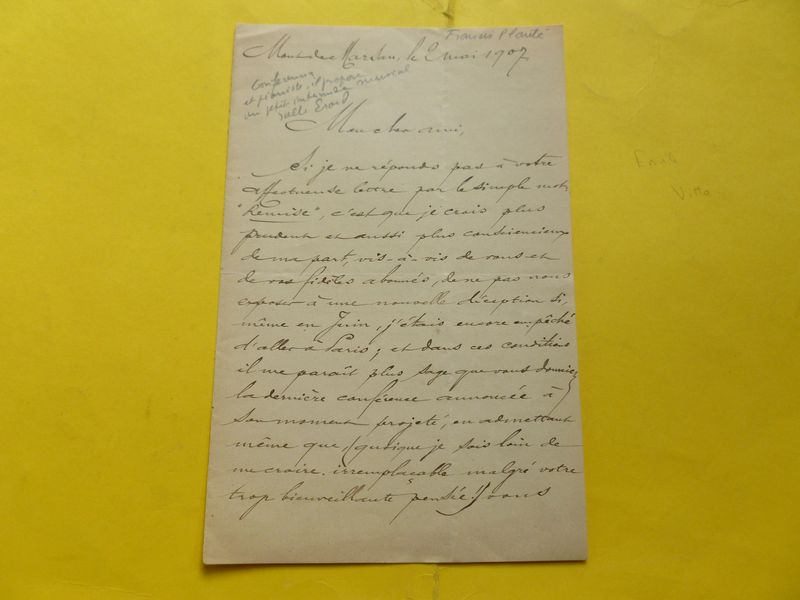 Francis Planté
Mont de Marsan, le 2 mai 1907
Conférence
et pianiste, il propose
un petit intermède musical
salle Erard
Mon cher ami,
Si je ne réponds pas à votre
affectueuse lettre par le simple mot
"Remise", c'est que je crois plus
prudent et aussi plus consciencieux
de ma part, vis-à-vis de vous et
de vos fidèles abonnés, de ne pas nous
exposer à une nouvelle déception si,
même en Juin, j'étais encore empêché
d'aller à Paris; et dans ces conditions
il me paraît plus sage que vous donniez
la dernière conférence annoncée à
son moment projeté, en admettant
même que, (quoique je sois loin de
me croire irremplaçable malgré votre
trop bienveillante pensée!) vous
Emile